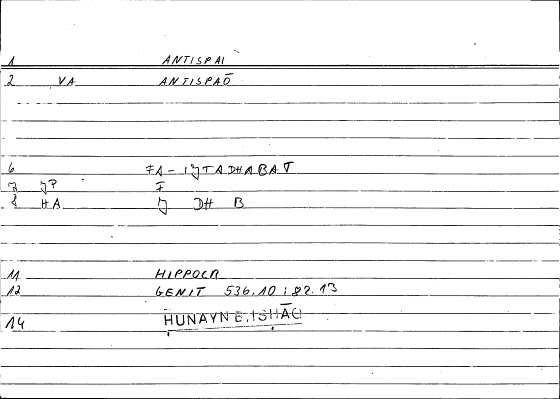 1 ANTISPAI
2 VA ANTISPAŌ
6 FA-IJTADHABAT
7 JP F
8 HA J DH B
11 HIPPOCR
12 GENIT 536.10 : 82.13
14 HUNAYN B. ISHĀQ